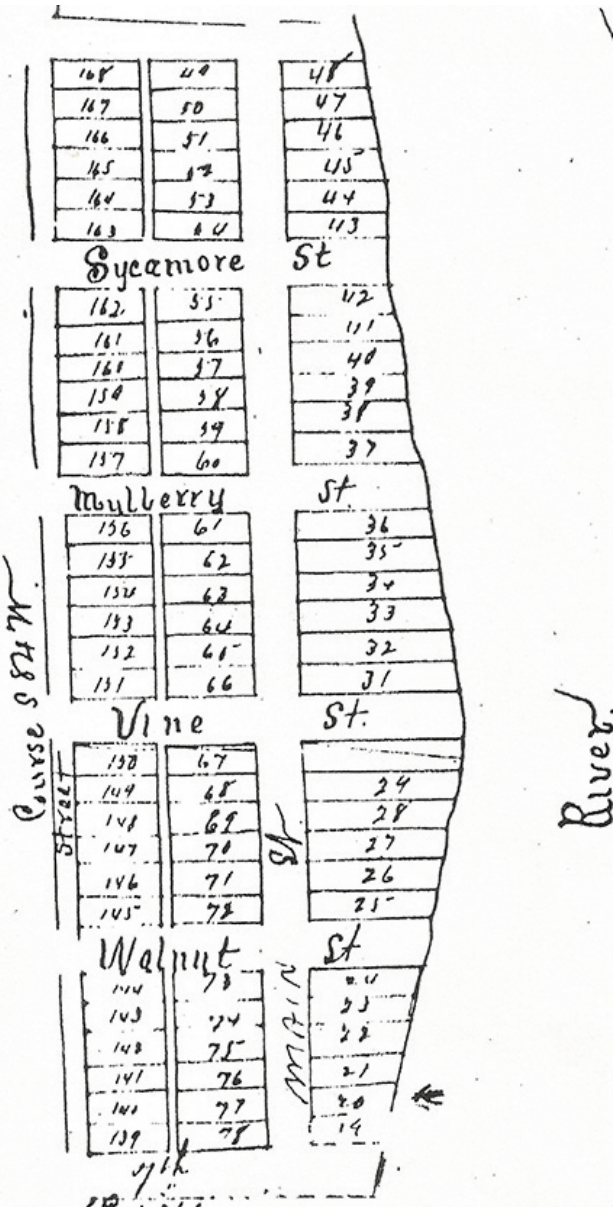 168 49 48
167 50 47
166 51 46
165 52 45
164 53 44
163 54 43
Sycamore St
162 55 42
161 56 41
160 57 40
159 58 39
158 59 38
157 60 37
Mulberry St
156 61 36
155 62 35
154 63 34
153 64 33
152 65 32
151 66 31
Vine St.
150 67
149 68 29
148 69 28
147 70 27
146 71 26
145 72 25
Walnut St
144 73 24
143 74 23
142 75 22
141 76 21
140 77 20
139 78 19
Course S 84 W.
Street
MAIN St
River.